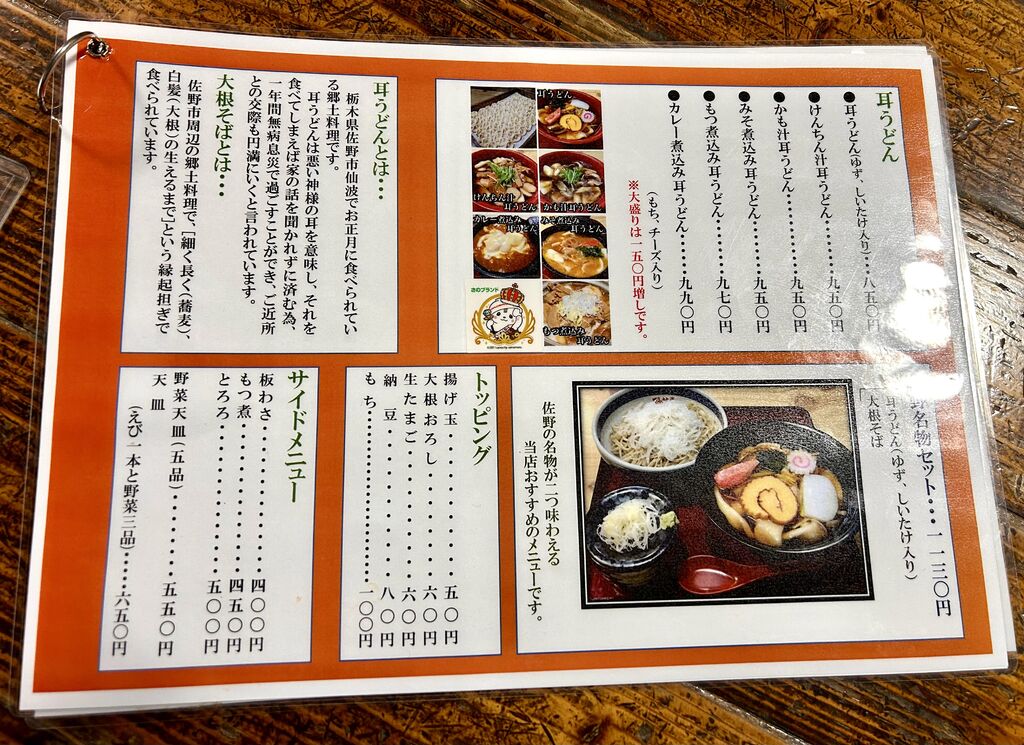 耳うどん
●耳うどん(ゆず、しいたけ入り)‥八五〇円
●けんちん汁耳うどん‥‥‥‥九五〇円
●かも汁耳うどん‥‥‥‥‥‥九五〇円
●みそ煮込み耳うどん‥‥‥‥九五〇円
●もつ煮込み耳うどん‥‥‥‥九七〇円
●カレー煮込み耳うどん‥‥‥九九〇円
(もち、チーズ入り)
※大盛りは一五〇円増しです。
耳うどん
かも汁耳うどん
けんちん汁
耳うどん
みそ煮込み
耳うどん
カレー煮込み
耳うどん
もつ煮込み
耳うどん
さのブランド
耳うどんとは・・・
栃木県佐野市仙波でお正月に食べられてい
る郷土料理です。
耳うどんは悪い神様の耳を意味し、それを
食べてしまえば家の話を聞かれずに済む為、
一年間無病息災で過ごすことができ、ご近所
との交際も円満にいくと言われています。
大根そばとは・・・
佐野市周辺の郷土料理で、[細く長く(蕎麦)、
白髪(大根)の生えるまで]という縁起担ぎで
食べられています。
名物セット・・・一一三〇円
耳うどん(ゆず、しいたけ入り)
大根そば
佐野の名物が二つ味わえる
当店おすすめのメニューです。
トッピング
揚げ玉‥‥‥‥‥‥五〇円
大根おろし‥‥‥‥六〇円
生たまご‥‥‥‥‥六〇円
納 豆‥‥‥‥‥‥八〇円
もち‥‥‥‥‥‥‥一〇〇円
サイドメニュー
板わさ‥‥‥‥‥‥四〇〇円
もつ煮‥‥‥‥‥‥四五〇円
とろろ‥‥‥‥‥‥五〇〇円
野菜天皿(五品)‥‥‥五五〇円
天 皿
(えび一本と野菜三品)‥‥六五〇円